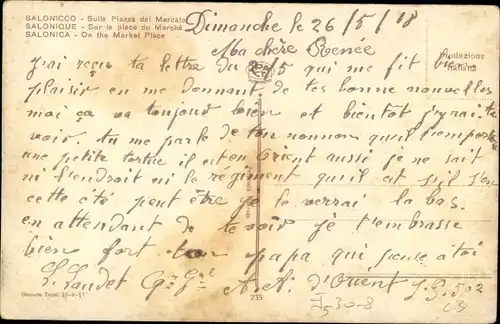 SALONICCO - Sulla Piazza del Mercato
SALONIQUE - Sur la place du Marché
SALONICA - On the Market Place
Dimanche le 26/5/18
Ma chère Renée
Produzione
Italiana
J'ai reçu ta lettre du 2/5 qui me fit bien
plaisir en me donnant de tes bonne nouvelles
moi ça va toujour bien et bientot j'yrai te
voir. tu me parle de ton nonnom qu'il t'emporte
une petite tortue il est en Orient aussi je ne sait
ni l'endroit ni le régiment qu'il est s'il s'en
cette été peut être je le verrai la bas.
en attendant de te voir je t'embrasse
bien fort ton papa qui pense a toi
L. Laudet Qr Gal A. A. d'Orient
235